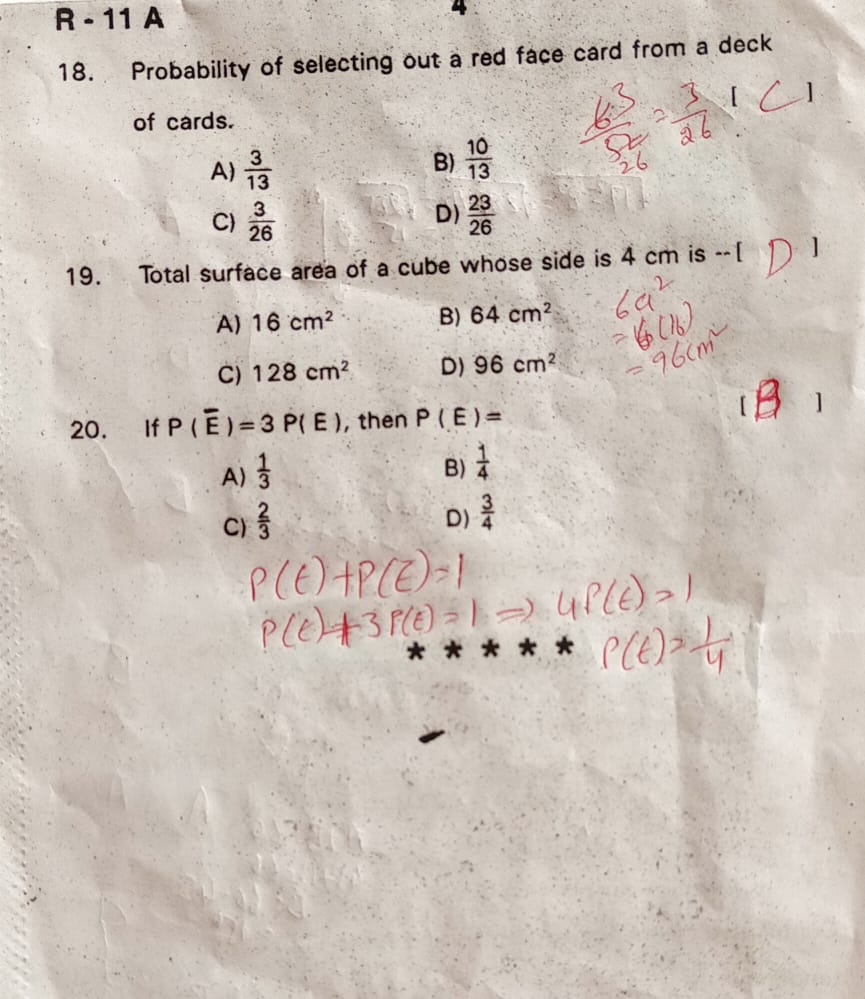 R - 11 A
4
18. Probability of selecting out a red face card from a deck
of cards. 6 3 / 52 26 = 3/26 [ C ]
A) 3/13 B) 10/13
C) 3/26 D) 23/26
19. Total surface area of a cube whose side is 4 cm is --[ D ]
A) 16 cm² B) 64 cm² 6a²
= 6(16)
C) 128 cm² D) 96 cm² = 96cm²
20. If P ( E̅ ) = 3 P( E ), then P ( E ) = [ B ]
A) 1/3 B) 1/4
C) 2/3 D) 3/4
P(E)+P(E̅)=1
P(E)+3P(E)=1 ⇒ 4P(E)=1
* * * * * P(E)=1/4